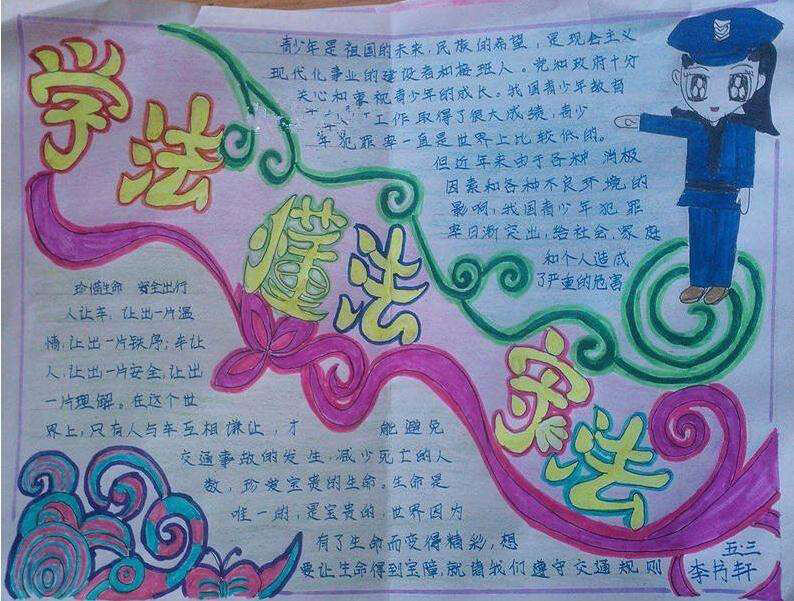 学法
懂法
守法
青少年是祖国的未来,民族的希望,是现会主义
现代化事业的建设者和接班人。党和政府十分
关心和重视青少年的成长。我国青少年教育
工作取得了很大成绩,青少
年犯罪率一直是世界上比较低的。
但近年来由于各种消极
因素和各种不良环境的
影响,我国青少年犯罪
率日渐突出,给社会、家庭
和个人造成
了严重的危害
珍惜生命 安全出行
人让车,让出一片温
情,让出一片秩序;车让
人,让出一片安全,让出
一片理解。在这个世
界上,只有人与车互相谦让,才能避免
交通事故的发生,减少死亡的人
数,珍爱宝贵的生命。生命是
唯一的,是宝贵的,世界因为
有了生命而变得精彩,想
要让生命得到宝障,就请我们遵守交通规则
五.三
李书轩